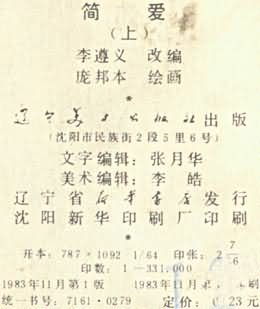 简 爱
(上)
李遵义 改编
庞邦本 绘画
*
辽宁美术出版社出版
(沈阳市民族街2段5里6号)
文字编辑：张月华
美术编辑：李 皓
辽宁省新华书店发行
沈阳新华印刷厂印刷
*
开本：787×1092 1/64 印张：2 7/6
印数：1—331,000
1983年11月第1版 1983年11月 印刷
统一书号：7161·0279 定价：0.23元